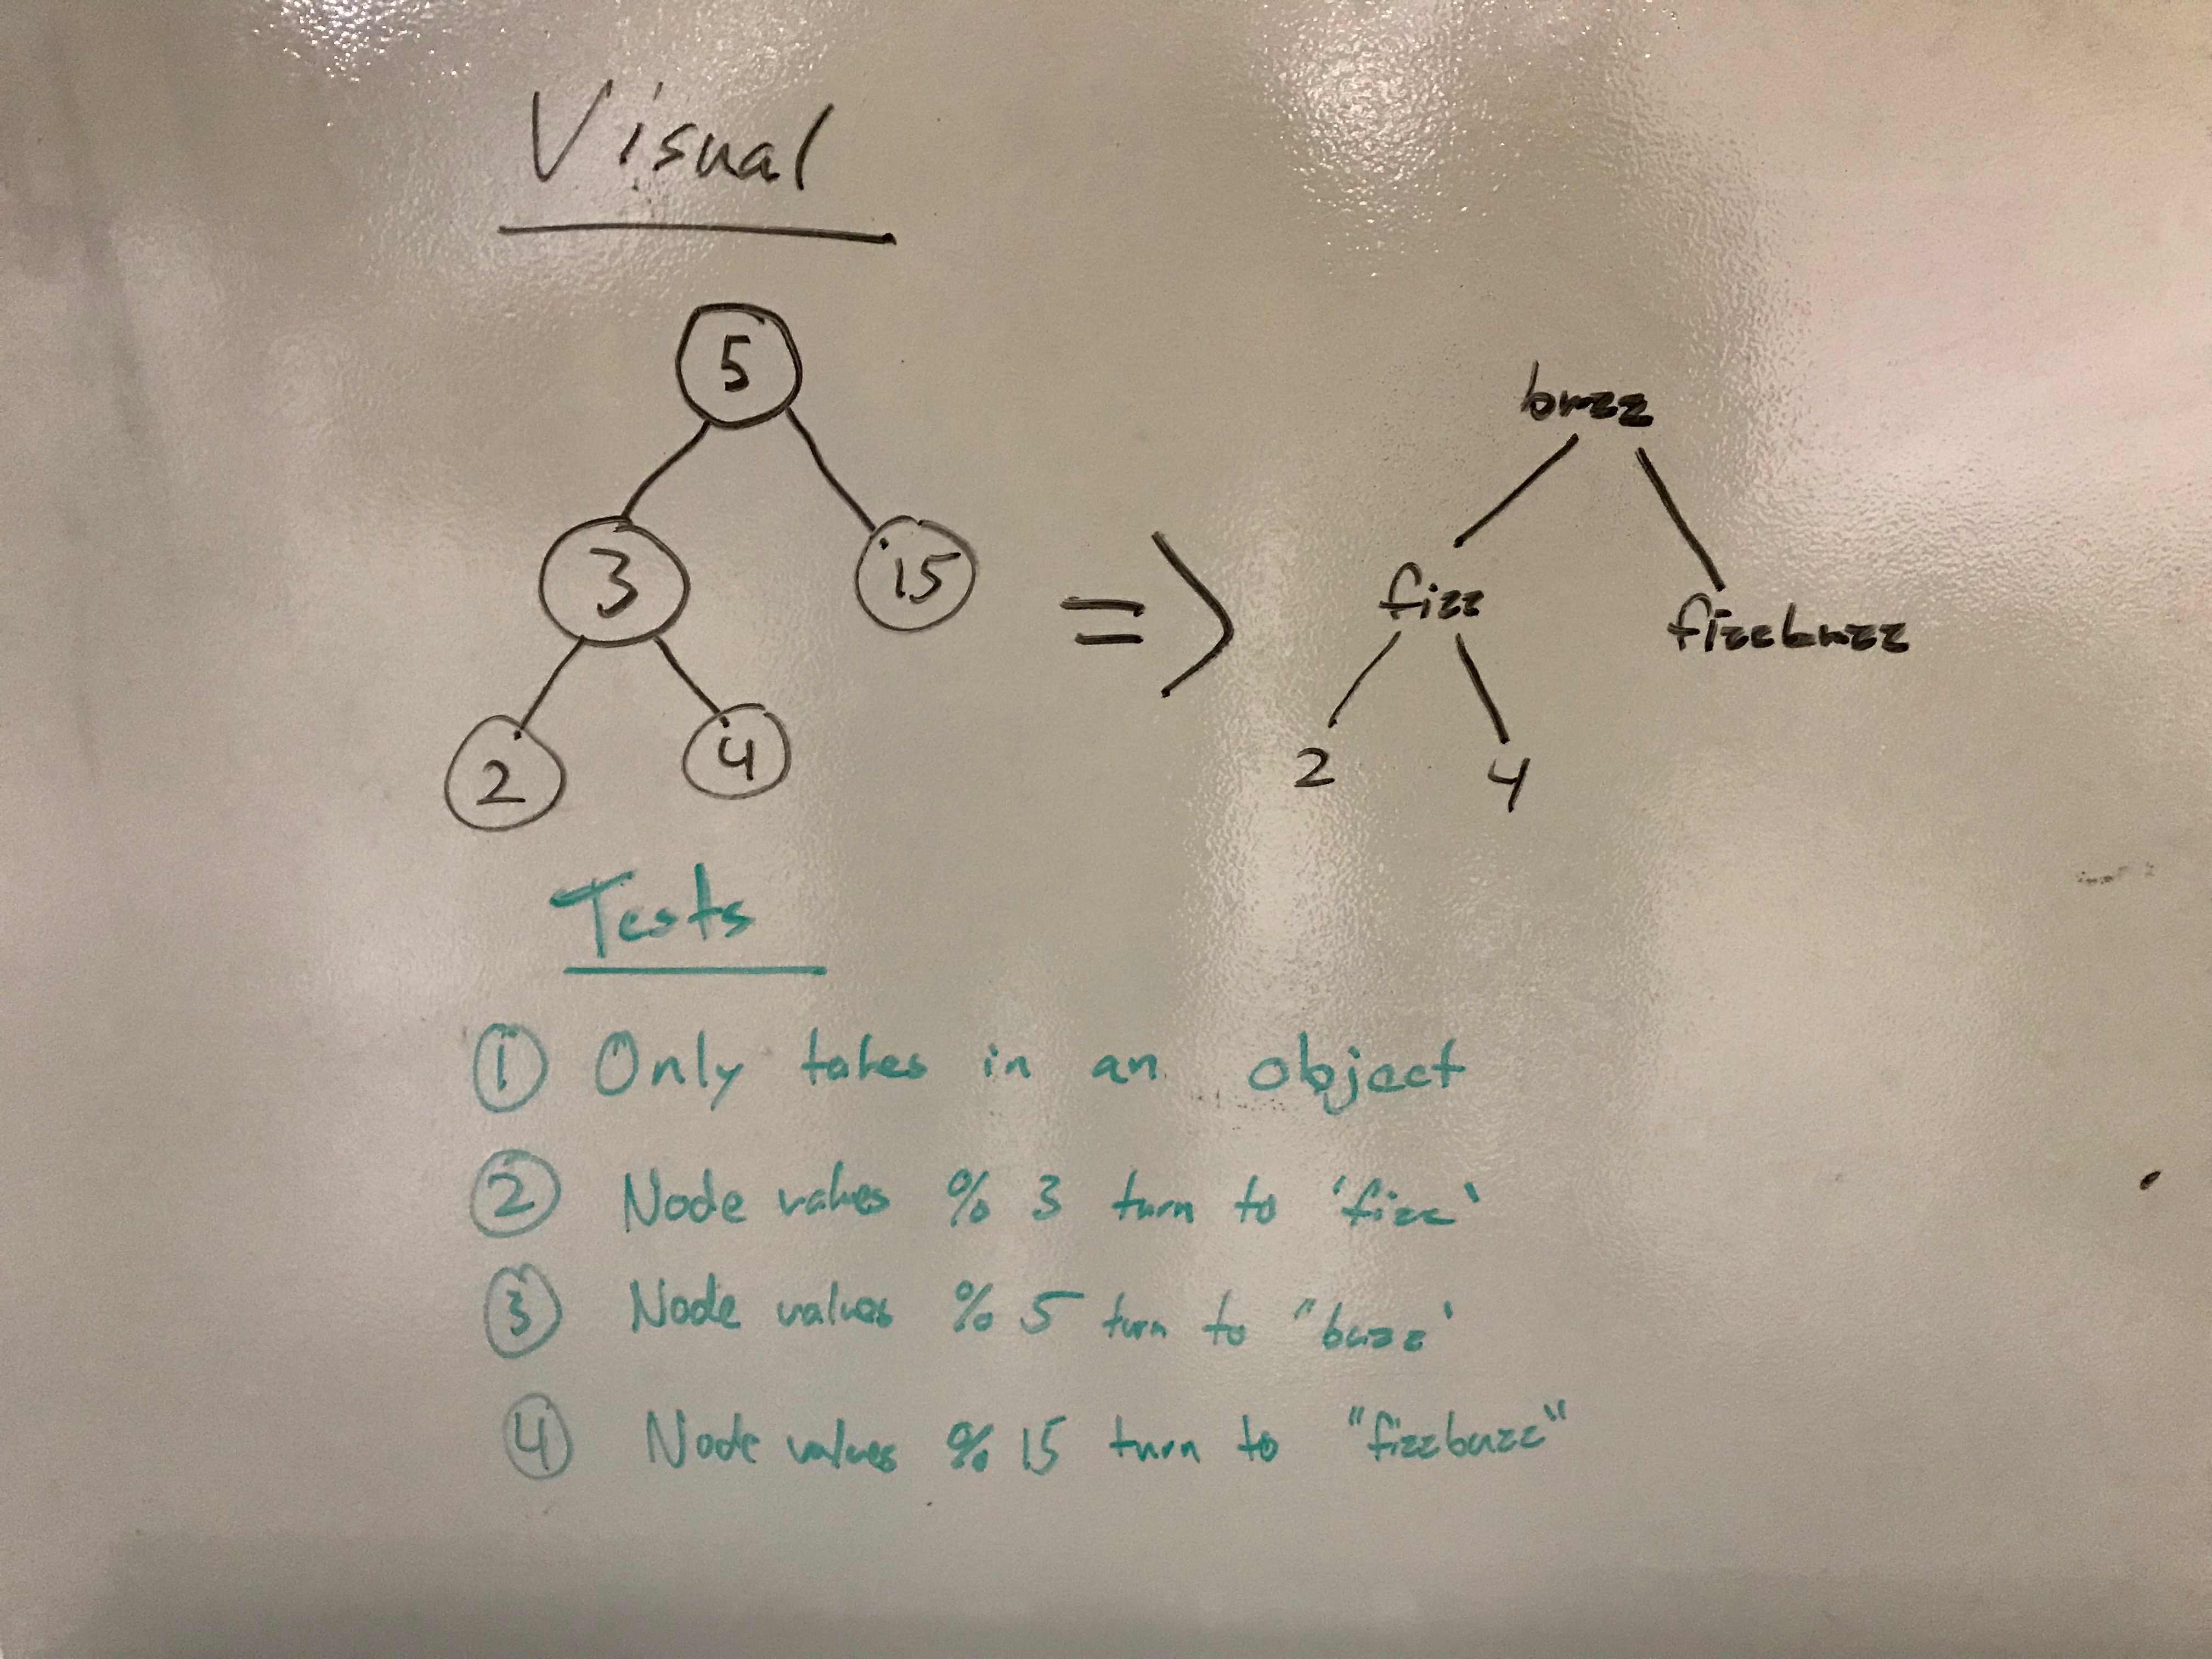 Visual
5
buzz
3 15 => fizz fizzbuzz
2 4 2 4
Tests
① Only takes in an object
② Node values % 3 turn to 'fizz'
③ Node values % 5 turn to "buzz'
④ Node values % 15 turn to "fizzbuzz"